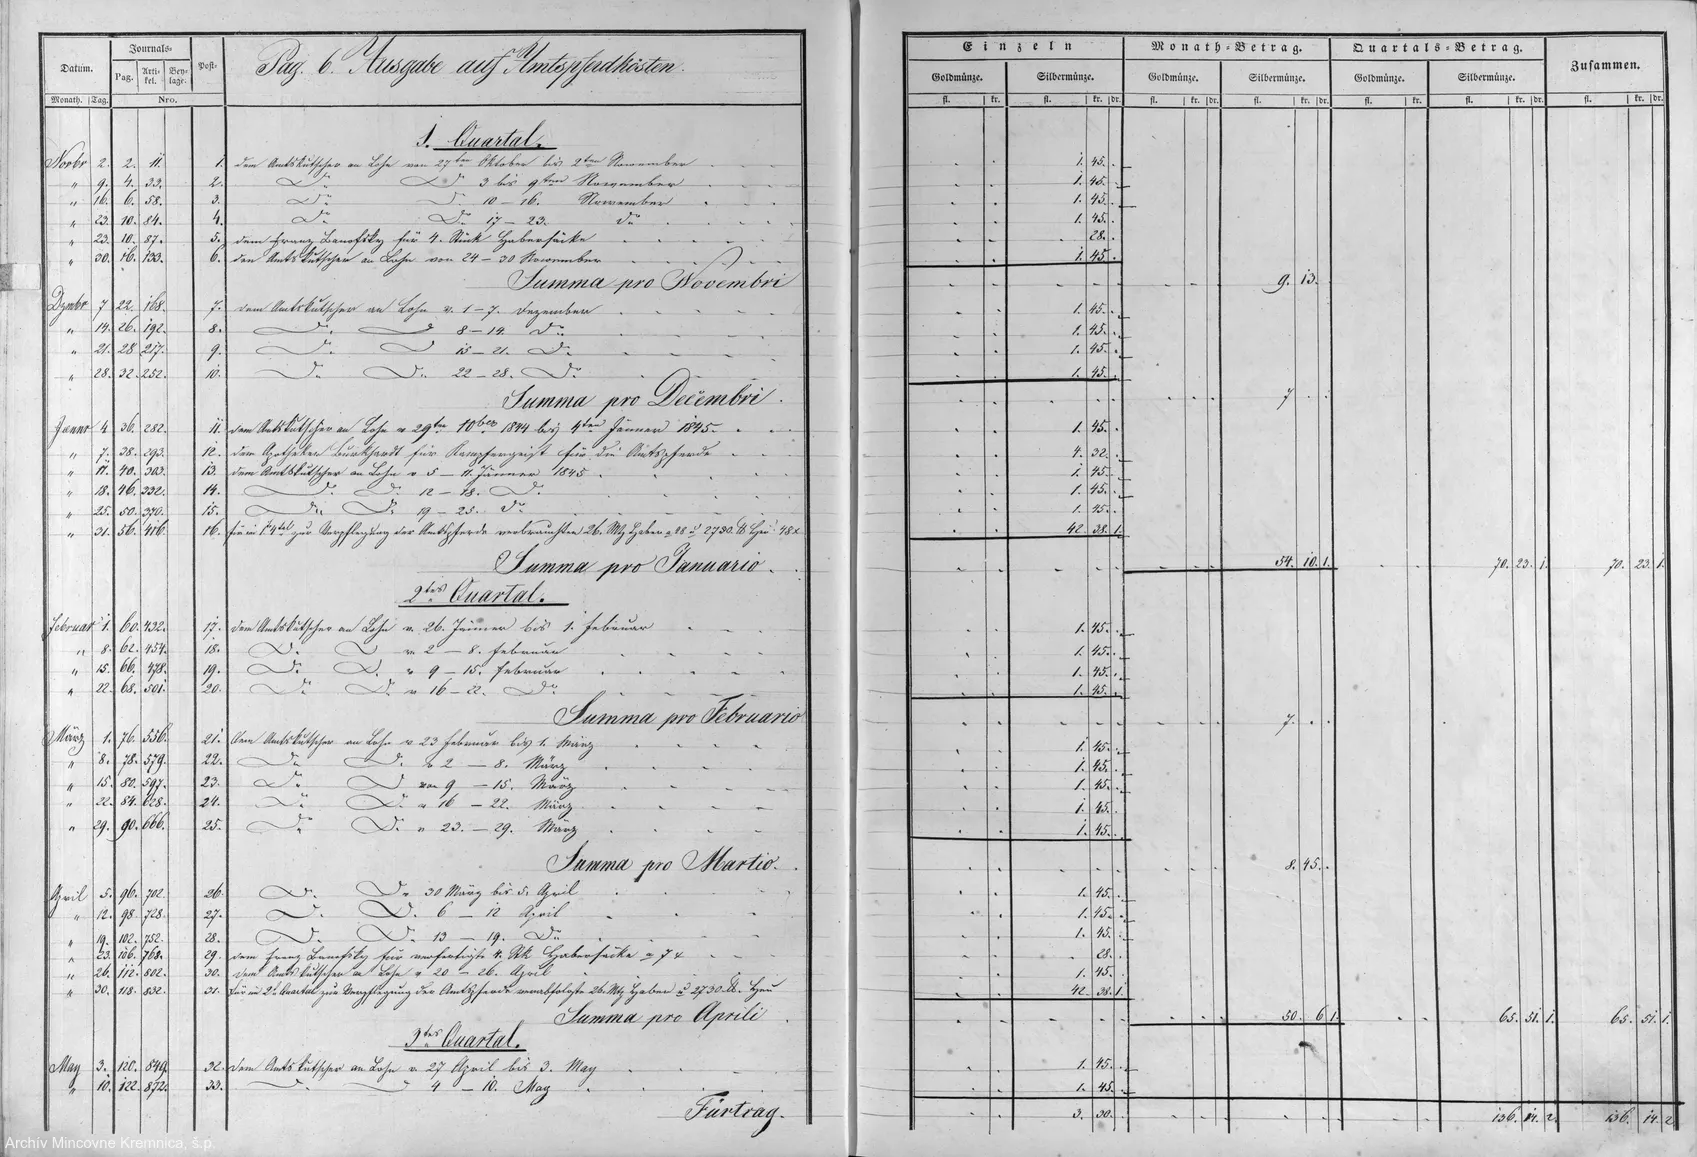 Datum. Journals- Post-
Pag. Arti- kel. Bey- lage.
Monath. Tag. Nro.
Pag. 6. Ausgabe auf Amtspferdkösten.
Einzeln Monath-Betrag. Quartals-Betrag. Zusammen.
Goldmünze. Silbermünze. Goldmünze. Silbermünze. Goldmünze. Silbermünze.
fl. kr. fl. kr. dr. fl. kr. dr. fl. kr. dr. fl. kr. dr. fl. kr. dr. fl. kr. dr.
1. Quartal.
Novbr 2. 2. 11. 1. dem Amtskutscher an Lohn von 27ten Oktober bis 2ten November 1. 45.
" 9. 4. 33. 2. Do Do 3 bis 9ten November 1. 45.
" 16. 6. 58. 3. Do Do 10 – 16. November 1. 45.
" 23. 10. 84. 4. Do Do 17 – 23. do 1. 45.
" 23. 10. 87. 5. dem Franz Banofsky für 4. Stück Habersäcke 28.
" 30. 16. 133. 6. den Amtskutscher an Lohn von 24 – 30 November 1. 45.
Summa pro Novembri 9. 13.
Dzmbr 7 22. 168. 7. dem Amtskutscher an Lohn v. 1 – 7. Dezember 1. 45.
" 14. 26. 192. 8. Do D 8 – 14. Do 1. 45.
" 21. 28 217. 9. Do D 15 – 21. Do 1. 45.
" 28. 32. 252. 10. Do Do 22 – 28. Do 1. 45.
Summa pro Decembri 7
Jänner 4 36. 282. 11. dem Amtskutscher an Lohn v 29ten 10ber 1844 bis 4ten Jänner 1845. 1. 45.
" 7. 38. 293. 12. dem Apotheker Burkhardt für Kampfergeist für die Amtspferde 4. 32.
" 11. 40. 303. 13. dem Amtskutscher an Lohn v 5 – 11. Jänner 1845 1. 45.
" 18. 46. 332. 14. Do Do 12 – 18. Do 1. 45.
" 25. 50. 370. 15. Do Do 19 – 25. Do 1. 45.
" 31. 56. 416. 16. für in 1. 4tel zur Verpflegung der Amtspferde verbrauchten 26. Mtz Haber 2730. ℔ Heu 48x 42 38. 1.
Summa pro Januario 54. 10. 1. 70. 23. 1. 70. 23. 1.
2tes Quartal.
Februar 1. 60. 432. 17. dem Amtskutscher an Lohn v. 26. Jänner bis 1. Februar 1. 45.
" 8. 62. 454. 18. Do D v 2 – 8. Februar 1. 45.
" 15. 66. 478. 19. Do D. v 9 – 15. Februar 1. 45.
" 22. 68. 501. 20. Do D. v 16 – 22. Do 1. 45.
Summa pro Februario 7.
März 1. 76. 556. 21. Dem Amtskutscher an Lohn v 23 Februar bis 1. März 1. 45.
" 8. 78. 579. 22. Do Do v 2 – 8. März 1. 45.
" 15 80. 597. 23. Do D von 9 – 15. März 1. 45.
" 22. 84. 628. 24. Do D. v 16 – 22. März 1. 45.
" 29. 90. 666. 25. Do Do v 23. – 29. März 1. 45.
Summa pro Martio. 8. 45.
April 5. 96. 702. 26. Do Do 30 März bis 5. April 1. 45.
" 12. 98. 728. 27. Do D. 6 – 12 April 1. 45.
" 19. 102. 752. 28. Do D. 13 – 19. Do 1. 45.
" 23. 106. 768. 29. dem Franz Banofsky für verfertigte 4. Stk Habersäcke a 7 x 28.
" 26. 112. 802. 30. Dem Amtskutscher a Lohn v 20 – 26. April 1. 45.
" 30. 118. 832. 31. Für im 2t Quartal zur Verpflegung der Amtspferde verabfolgte 26. Mtz Haber u 2730 ℔. Heu 42. 38. 1.
Summa pro Aprili 50. 6 1. 65. 51. 1. 65. 51. 1.
3tes Quartal.
May 3. 120. 849. 32. Dem Amtskutscher an Lohn v. 27 April bis 3. May 1. 45.
" 10. 122. 872. 33. 4 – 10. May 1. 45.
Fürtrag. 3. 30. 136. 14. 2. 136. 14. 2
Archív Mincovne Kremnica, š.p.